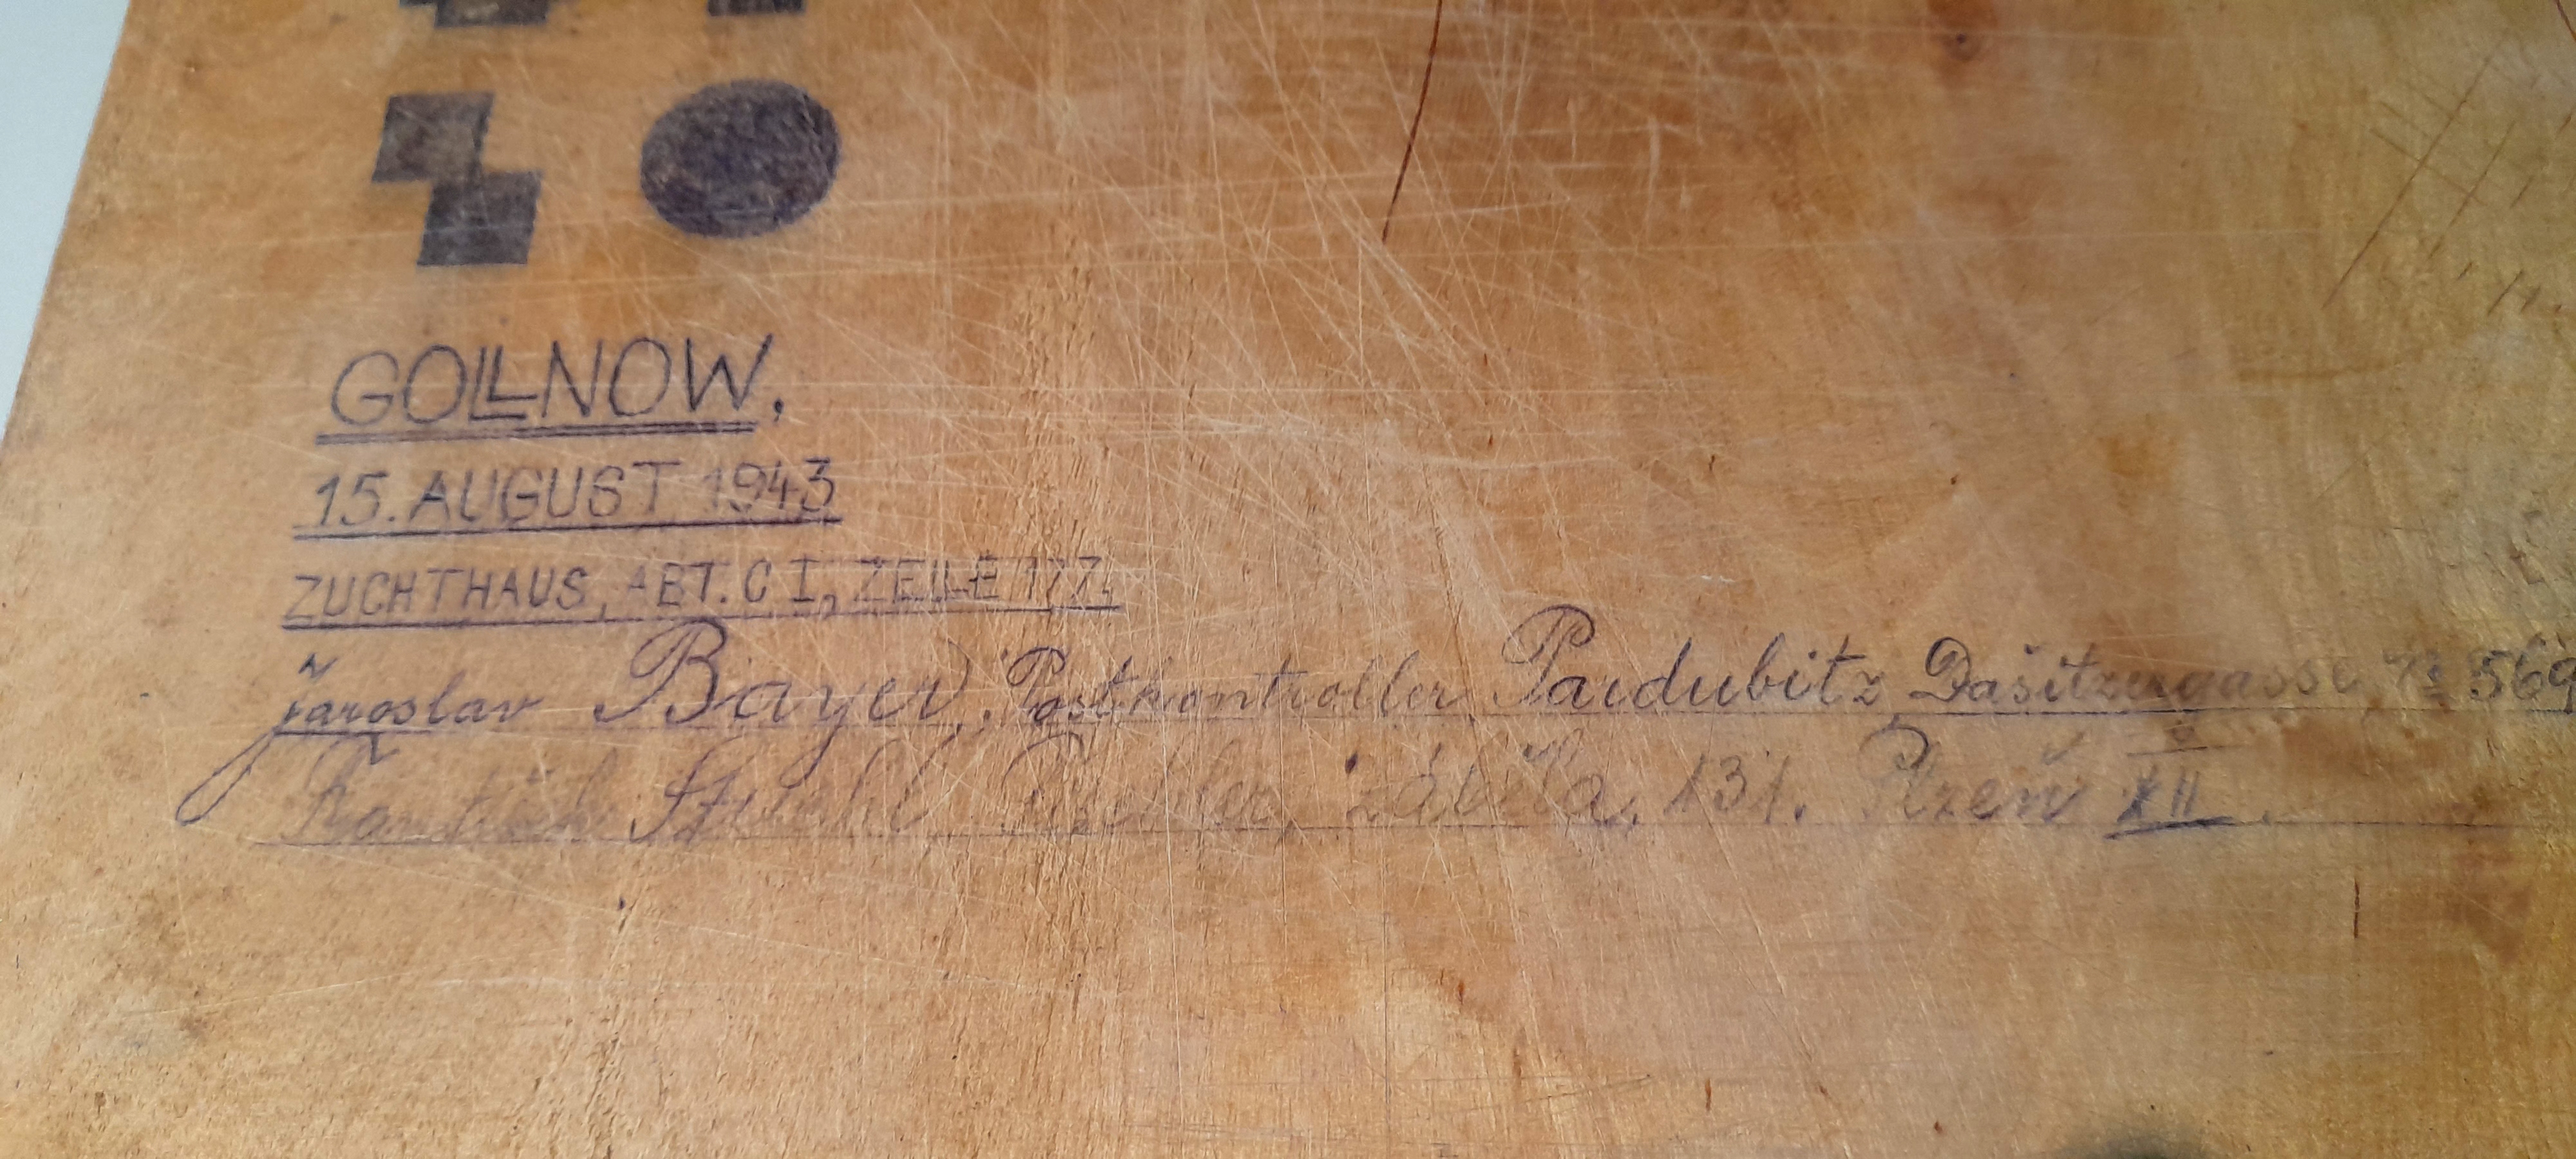 GOLLNOW,
15. AUGUST 1943
ZUCHTHAUS, ABT. C I, ZELLE 177.
Jaroslav Bayer, Postkontroller Pardubitz Dašitzergasse 569
František Tischler, Záběla, 131. Plzeň XII.